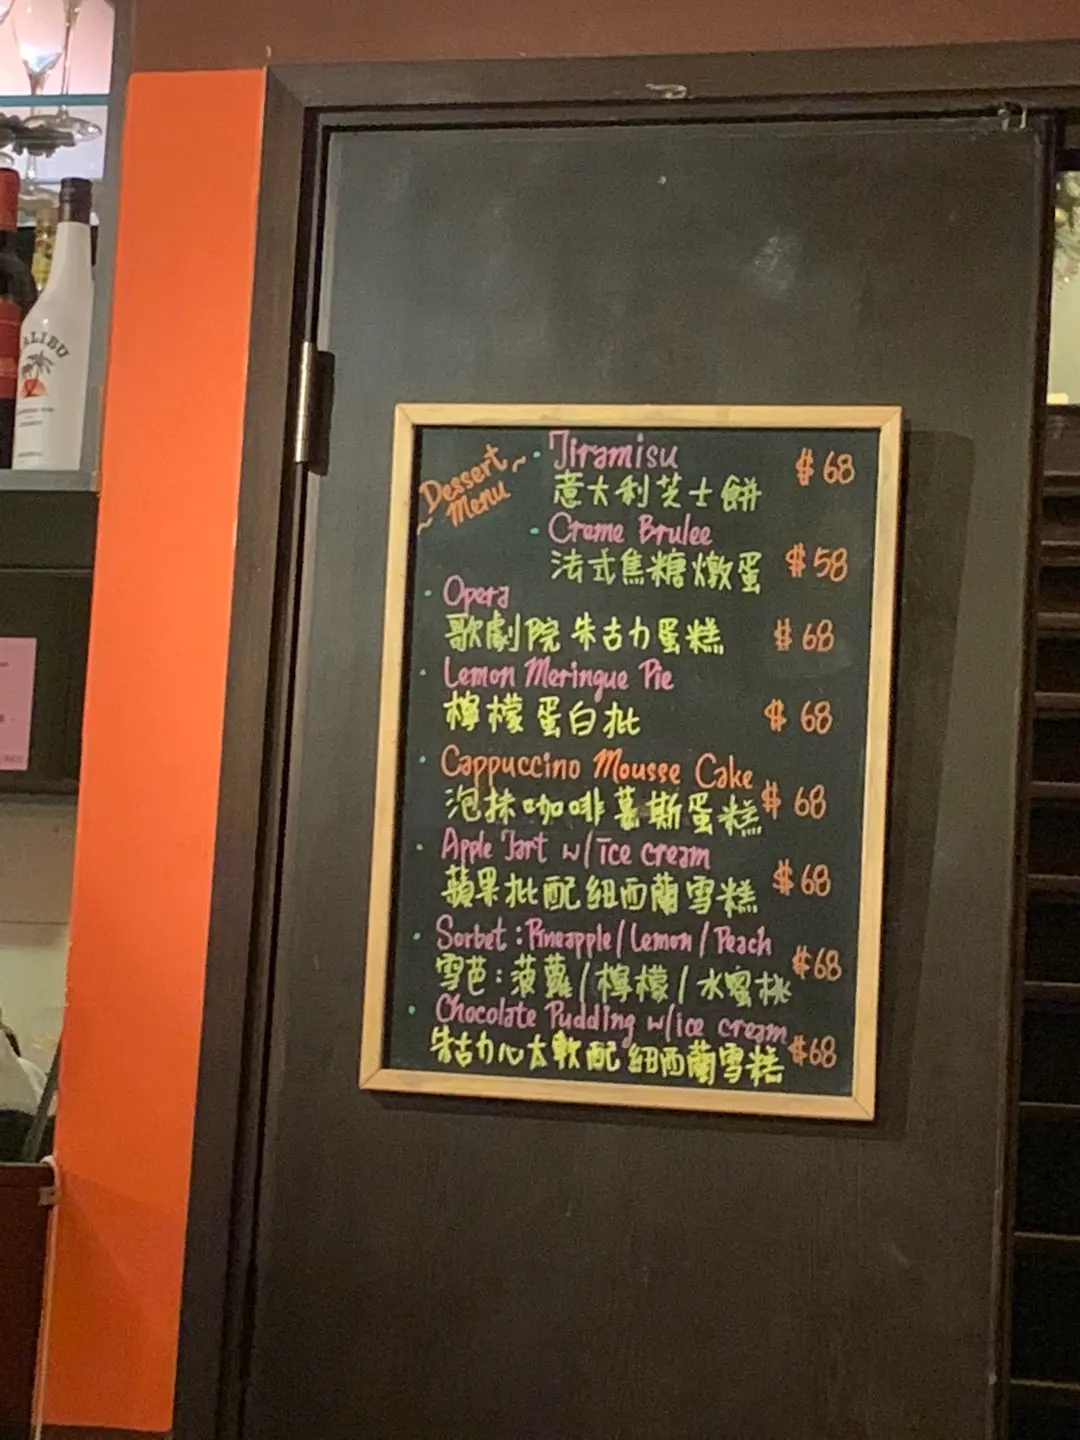 ALIBU
~ Dessert Menu ~
· Tiramisu
意大利芝士餅 $68
· Creme Brulee
法式焦糖燉蛋 $58
· Opera
歌劇院朱古力蛋糕 $68
· Lemon Meringue Pie
檸檬蛋白批 $68
· Cappuccino Mousse Cake
泡抹咖啡慕斯蛋糕 $68
· Apple Tart w/ ice cream
蘋果批配紐西蘭雪糕 $68
· Sorbet : Pineapple / Lemon / Peach
雪芭：菠蘿 / 檸檬 / 水蜜桃 $68
· Chocolate Pudding w/ice cream
朱古力心太軟配紐西蘭雪糕 $68